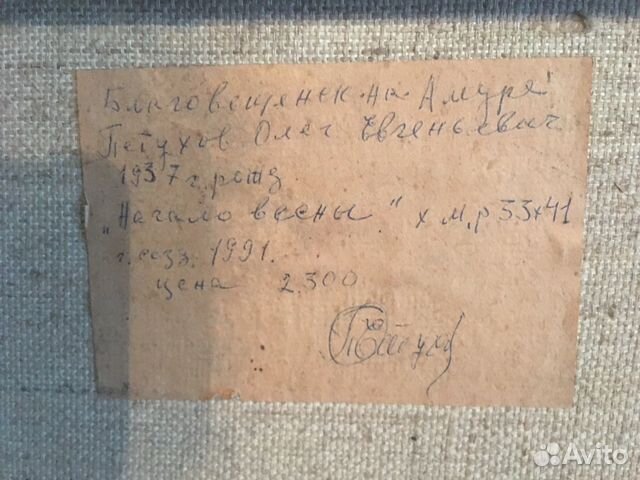 Благовещенск-на-Амуре
Петухов Олег Евгеньевич
1937 г. рожд
„Начало весны" х.м, р 33х41
г. созд. 1991.
цена 2.300
Петухов
Avito